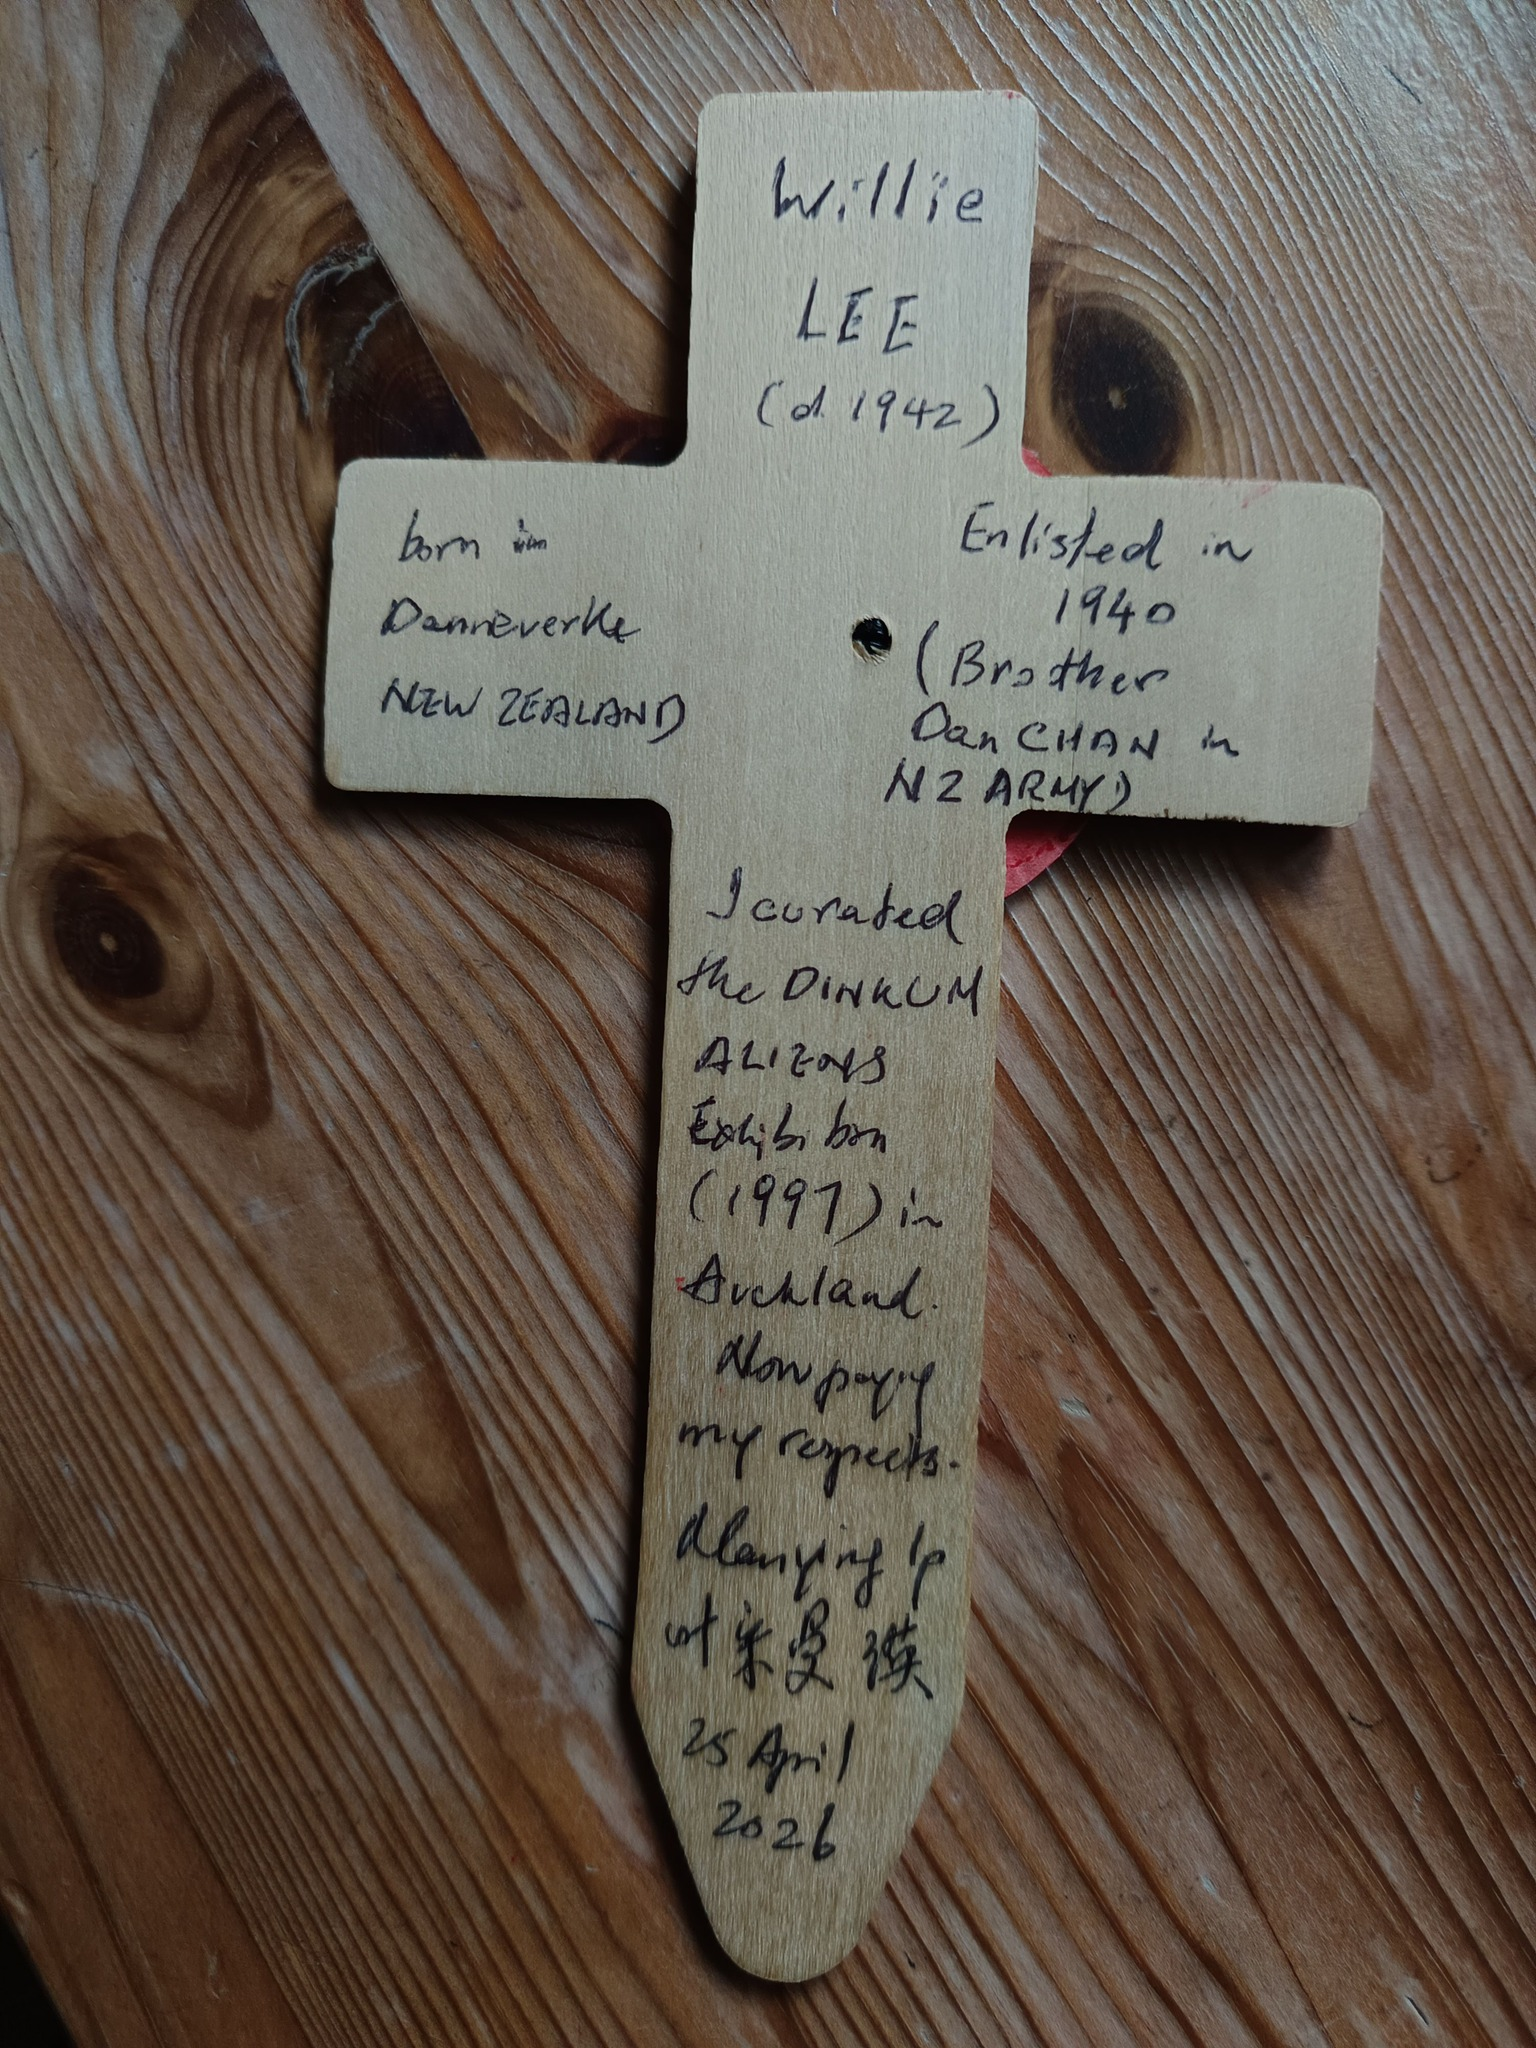 Willie
LEE
(d. 1942)
born in
Danneverke
NEW ZEALAND
Enlisted in
1940
(Brother
Dan CHAN in
NZ ARMY)
I curated
the DINKUM
ALIENS
Exhibition
(1997) in
Auckland.
Now paying
my respects.
Manying Ip
曼
25 April
2026